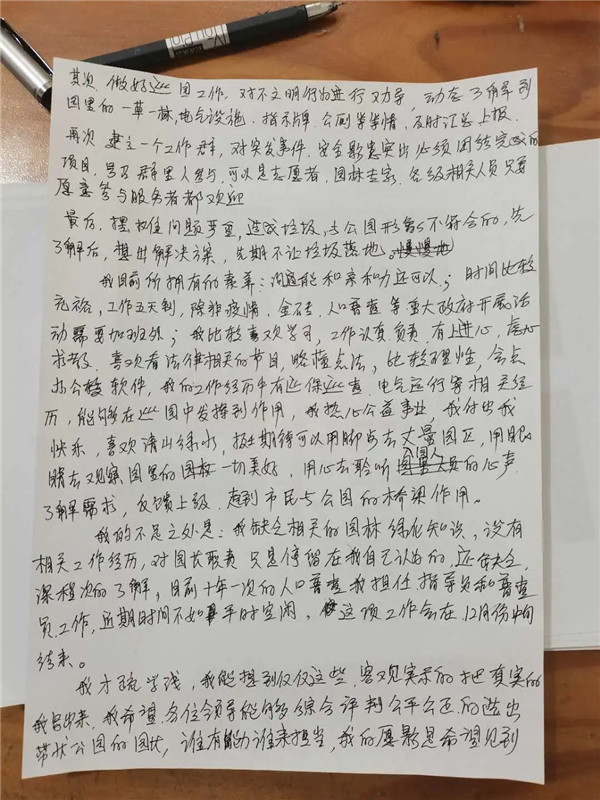 其次,做好巡园工作,对不文明行为进行劝导,动态了解到
园里的一草一林,电气设施、指示牌、公厕等等情,及时汇总上报。
再次 建立一个工作群,对突发事件、安全隐患突出必须团结完成的
项目,号召群里人参与,可以是志愿者,园林专家、各级相关人员只要
愿意参与服务者都欢迎
最后,摆摊位问题严重,造成垃圾,与公园形象不符合的,先
了解后,想出解决方案,先期不让垃圾落地。
我目前所拥有的素养:沟通能和亲和力还可以;时间比较
充裕,工作五天制,除非疫情、金砖、人口普查等重大政府开展活
动需要加班外;我比较喜欢学习,工作认真负责,有上进心,虚心
求教、喜欢看法律相关的节目,略懂点法,比较理性,会点
办公软件,我的工作经历中有巡保巡查、电气运行等相关经
历,能够在巡园中发挥到作用,我热心公益事业,我付出我
快乐,喜欢清山绿水,期待可以用脚步去丈量园区,用眼
睛去观察园里的一切美好,用心去聆听公园人的心声
了解需求,反馈上级、起到市民与公园的桥梁作用。
我的不足之处是:我缺乏相关的园林绿化知识,没有
相关工作经历,对园长职责只是停留在我自己认为的,还缺乏
深程次的了解,目前十年一次的人口普查我担任指导员和普查
员工作,近期时间不如平时空闲,这项工作会在12月份中旬
结束。
我才疏学浅,我能想到仅仅这些,客观实示的把真实的
我写出来,我希望各位领导能够综合评判公平公正的选出
带状公园的园长,谁有能力谁来担当,我的愿景是希望见到